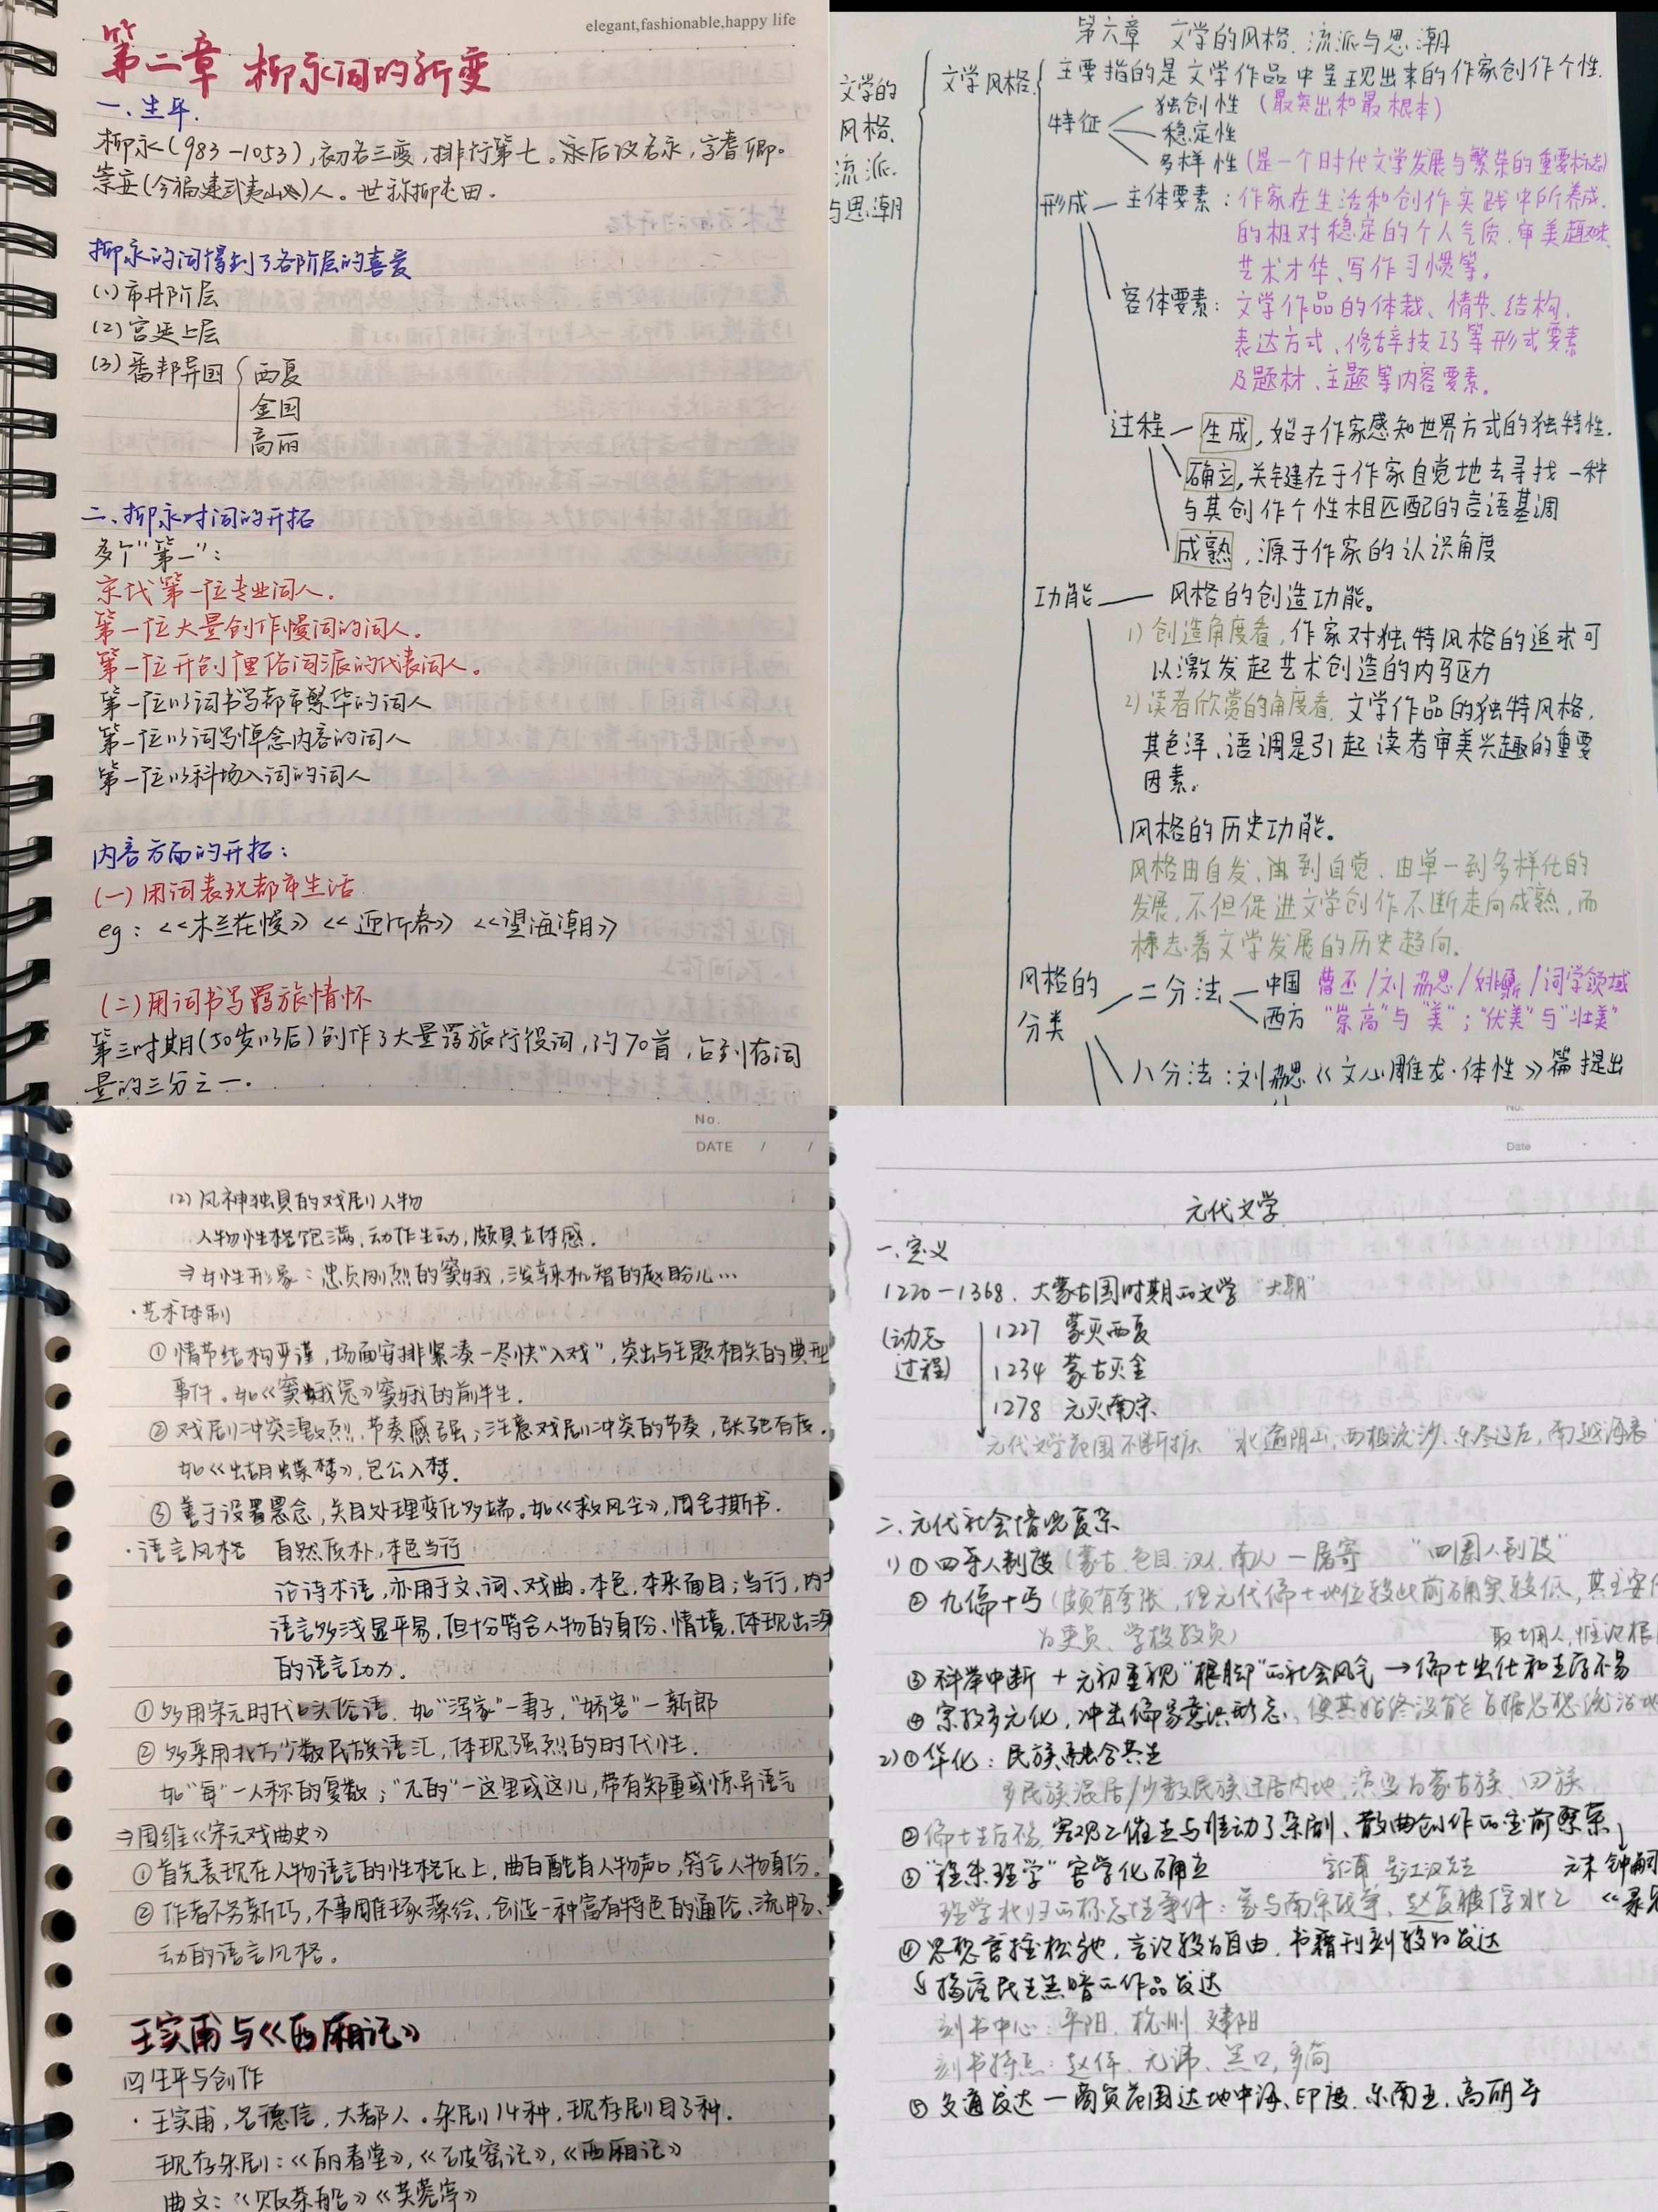 elegant,fashionable,happy life
第二章 柳永词的新变
一、生平.
柳永(983-1053),初名三变,排行第七。永后改名永,字耆卿。
崇安(今福建武夷山)人。世称柳屯田.
柳永的词得到了各阶层的喜爱
(1)市井阶层
(2)宫廷上层
(3)番邦异国 西夏
金国
高丽
二、柳永对词的开拓
多个“第一”:
宋代第一位专业词人.
第一位大量创作慢词的词人.
第一位开创俚俗词派的代表词人.
第一位以词书写都市繁华的词人
第一位以词写悼念内容的词人
第一位以科场入词的词人
内容方面的开拓:
(一)用词表现都市生活
eg:《木兰花慢》《迎新春》《望海潮》
(二)用词书写羁旅情怀
第三时期(50岁以后)创作了大量羁旅行役词,约70首,占到存词
量的三分之一.
第六章 文学的风格、流派与思潮
文学的
风格、
流派、
与思潮
文学风格 主要指的是文学作品中呈现出来的作家创作个性.
特征 独创性(最突出和最根本)
稳定性
多样性(是一个时代文学发展与繁荣的重要标志)
形成 主体要素:作家在生活和创作实践中所养成
的相对稳定的个人气质、审美趣味、
艺术才华、写作习惯等。
客体要素:文学作品的体裁、情节、结构,
表达方式、修辞技巧等形式要素
及题材、主题等内容要素。
过程 生成,始于作家感知世界方式的独特性.
确立,关键在于作家自觉地去寻找一种
与其创作个性相匹配的言语基调
成熟,源于作家的认识角度
功能 风格的创造功能。
1)创造角度看,作家对独特风格的追求可
以激发起艺术创造的内驱力
2)读者欣赏的角度看,文学作品的独特风格,
其色泽、语调是引起读者审美兴趣的重要
因素。
风格的历史功能。
风格由自发、到自觉、由单一到多样化的
发展,不但促进文学创作不断走向成熟,而
标志着文学发展的历史趋向.
风格的
分类
二分法 中国 曹丕/刘勰/姚鼐/词学领域
西方 “崇高”与“美”;“优美”与“壮美”
八分法:刘勰《文心雕龙·体性》篇提出
No.
DATE / /
(2)风神独具的戏剧人物
人物性格饱满,动作生动,颇具立体感.
⇒女性形象:忠贞刚烈的窦娥,泼辣机智的赵盼儿…
·艺术体制
①情节结构严谨,场面安排紧凑—尽快“入戏”,突出与主题相关的典型
事件。如《窦娥冤》窦娥的前半生.
②戏剧冲突激烈,节奏感强;注意戏剧冲突的节奏,张弛有度.
如《蝴蝶梦》,包公入梦.
③善于设置悬念,关目处理变化多端。如《救风尘》,周舍撕书.
·语言风格 自然质朴,本色当行
论诗术语,亦用于文、词、戏曲。本色,本来面目;当行,内
语言多浅显平易,但十分符合人物的身份、情境,体现出
的语言功力.
①多用宋元时代口头俗语.如“浑家”—妻子,“娇客”—新郎
②多采用北方少数民族语汇,体现强烈的时代性.
如“每”—人称的复数;“兀的”—这里或这儿,带有郑重或惊异语气
⇒国维《宋元戏曲史》
①首先表现在人物语言的性格化上,曲白酷肖人物声口,符合人物身份.
②作者不务新巧,不事雕琢藻绘,创造一种富有特色的通俗、流畅、
动的语言风格。
王实甫与《西厢记》
生平与创作
·王实甫,名德信,大都人。杂剧14种,现存剧目3种.
现存杂剧:《丽春堂》,《破窑记》,《西厢记》
曲文:《贩茶船》《芙蓉亭》
No.
Date
元代文学
一.定义
1220-1368.大蒙古国时期的文学 “大朝”
(动态
过程)
1227 蒙灭西夏
1234 蒙古灭金
1278 元灭南宋
元代文学范围不断扩大 “北逾阴山,西极流沙,东尽辽左,南越海表”
二.元代社会情况复杂
1)①四等人制度(蒙古.色目.汉人.南人) “四圈人制度”
②九儒十丐(颇有夸张,但元代儒士地位较此前确实较低,其主要
为吏员、学校教员)
取士用人,惟论根
③科举中断+元初重视“根脚”的社会风气→儒士出仕和生存不易
④宗教多元化,冲击儒家意识形态,使其始终没能占据思想统治
2)①华化:民族融合共生
多民族混居/少数民族迁居内地,演变为蒙古族、回族
②儒士生存不易,客观上催生与推动了杂剧、散曲创作的空前繁荣
③“程朱理学”官学化确立 号江汉先生 元末钟嗣
理学北归的标志性事件:蒙与南宋战争,赵复被俘北上
④思想管控松弛,言论较为自由,书籍刊刻较为发达
揭露民生黑暗的作品发达
刻书中心:平阳.杭州.建阳
刻书特点:赵体、无讳、黑口,多简
⑤交通发达—商贸范围达地中海、印度、东南亚、高丽等